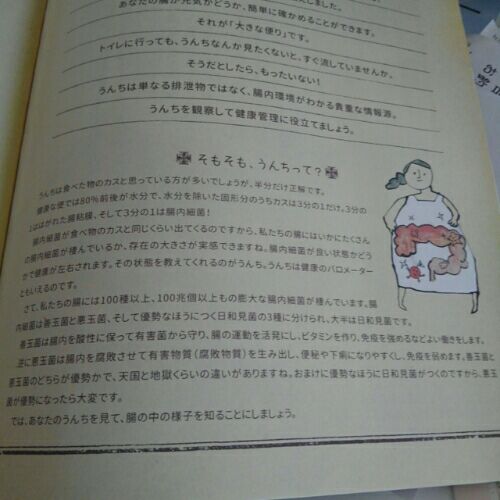 あなたの腸が元気かどうか、簡単に確かめることができます。
それが「大きな便り」です。
トイレに行っても、うんちなんか見たくないと、すぐ流していませんか。
そうだとしたら、もったいない!
うんちは単なる排泄物ではなく、腸内環境がわかる貴重な情報源。
うんちを観察して健康管理に役立てましょう。
そもそも、うんちって?
うんちは食べた物のカスと思っている方が多いでしょうが、半分だけ正解です。
健康な便では80%前後が水分で、水分を除いた固形分のうちカスは3分の1だけ。3分の
1ははがれた腸粘膜、そして3分の1は腸内細菌!
腸内細菌が食べ物のカスと同じくらい出てくるのですから、私たちの腸にはいかにたくさん
の腸内細菌が棲んでいるか、存在の大きさが実感できますね。腸内細菌が良い状態かどう
かで健康が左右されます。その状態を教えてくれるのがうんち。うんちは健康のバロメーター
ともいえるのです。
さて、私たちの腸には100種以上、100兆個以上もの膨大な腸内細菌が棲んでいます。腸
内細菌は善玉菌と悪玉菌、そして優勢なほうにつく日和見菌の3種に分けられ、大半は日和見菌です。
善玉菌は腸内を酸性に保って有害菌から守り、腸の運動を活発にし、ビタミンを作り、免疫を強めるなどよい働きをします。
逆に悪玉菌は腸内を腐敗させて有害物質(腐敗物質)を生み出し、便秘や下痢になりやすくし、免疫を弱めます。善玉菌と
悪玉菌のどちらが優勢かで、天国と地獄くらいの違いがありますね。おまけに優勢なほうに日和見菌がつくのですから、悪玉
菌が優勢になったら大変です。
では、あなたのうんちを見て、腸の中の様子を知ることにしましょう。